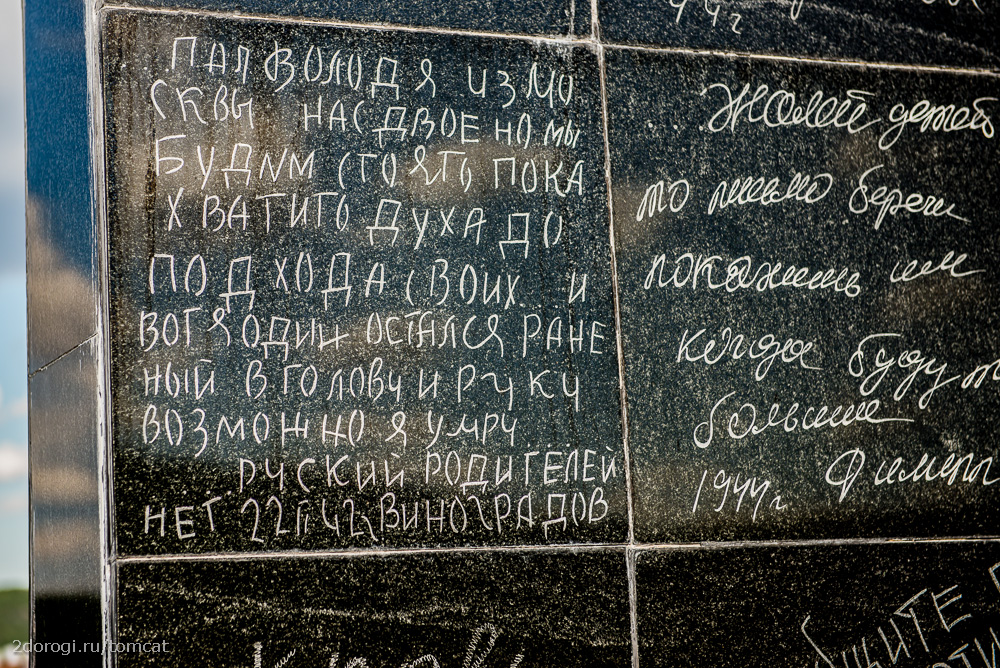 ПАЛ ВОЛОДЯ ИЗ МО
СКВЫ НАС ДВОЕ НО МЫ
БУДИМ СТОЯТЬ ПОКА
ХВАТИТ ДУХА ДО
ПОДХОДА СВОИХ И
ВОТ Я ОДИН ОСТАЛСЯ РАНЕ
НЫЙ В ГОЛОВУ И РУКУ
ВОЗМОЖНО Я УМРУ
РУСКИЙ РОДИТЕЛЕЙ
НЕТ 22 ВИНОГРАДОВ
44 г
Жалей детей
то письмо береги
покажишь им
когда будут
больше
1944 г
2dorogi.ru/tomcat